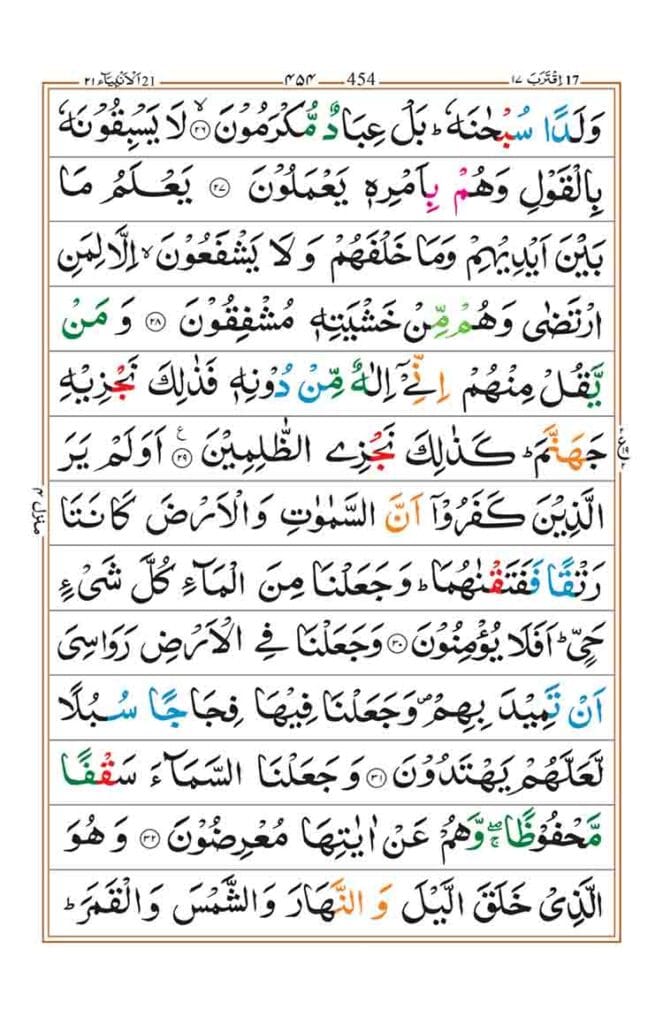 اِقْتَرَبَ ١٧ 17
454 ۴۵۴
21 اَلْاَنْۢبِيَآء ٢١
وَلَدًا سُبْحٰنَهٗ ؕ بَلْ عِبَادٌ مُّكْرَمُوْنَ ۙ‏﴿۲۶﴾ لَا يَسْبِقُوْنَهٗ
بِالْقَوْلِ وَهُمْ بِاَمْرِهٖ يَعْمَلُوْنَ ﴿۲۷﴾ يَعْلَمُ مَا
بَيْنَ اَيْدِيْهِمْ وَمَا خَلْفَهُمْ وَلَا يَشْفَعُوْنَ ۙ اِلَّا لِمَنِ
ارْتَضٰى وَهُمْ مِّنْ خَشْيَتِهٖ مُشْفِقُوْنَ ﴿۲۸﴾ وَمَنْ
يَّقُلْ مِنْهُمْ اِنِّىْۤ اِلٰهٌ مِّنْ دُوْنِهٖ فَذٰلِكَ نَجْزِيْهِ
جَهَنَّمَ ؕ كَذٰلِكَ نَجْزِى الظّٰلِمِيْنَ ﴿۲۹﴾ ع اَوَلَمْ يَرَ
الَّذِيْنَ كَفَرُوْۤا اَنَّ السَّمٰوٰتِ وَالْاَرْضَ كَانَتَا
رَتْقًا فَفَتَقْنٰهُمَا ؕ وَجَعَلْنَا مِنَ الْمَآءِ كُلَّ شَىْءٍ
حَىٍّ ؕ اَفَلَا يُؤْمِنُوْنَ ﴿۳۰﴾ وَجَعَلْنَا فِى الْاَرْضِ رَوَاسِىَ
اَنْ تَمِيْدَ بِهِمْ ۪ وَجَعَلْنَا فِيْهَا فِجَاجًا سُبُلًا
لَّعَلَّهُمْ يَهْتَدُوْنَ ﴿۳۱﴾ وَجَعَلْنَا السَّمَآءَ سَقْفًا
مَّحْفُوْظًا ۖۚ وَّهُمْ عَنْ اٰيٰتِهَا مُعْرِضُوْنَ ﴿۳۲﴾ وَهُوَ
الَّذِىْ خَلَقَ الَّيْلَ وَالنَّهَارَ وَالشَّمْسَ وَالْقَمَرَ ؕ
منزل ۴